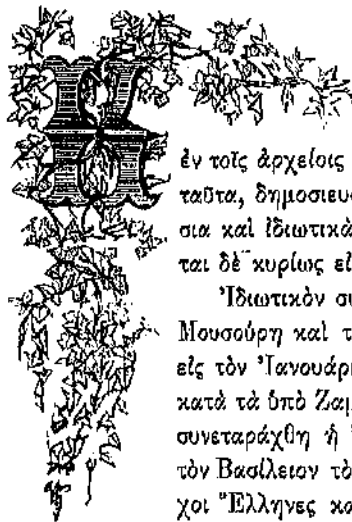 Η
ἐν τοῖς ἀρχείοις
ταῦτα, δημοσιευ
σια καὶ ἰδιωτικὰ
ται δὲ κυρίως εἰ
Ἰδιωτικὸν συ
Μουσούρη καὶ τ
εἰς τὸν Ἰανουάρι
κατὰ τὰ ὑπὸ Ζαμ
συνεταράχθη ἡ
τὸν Βασίλειον τὸ
χοι Ἕλληνες κα